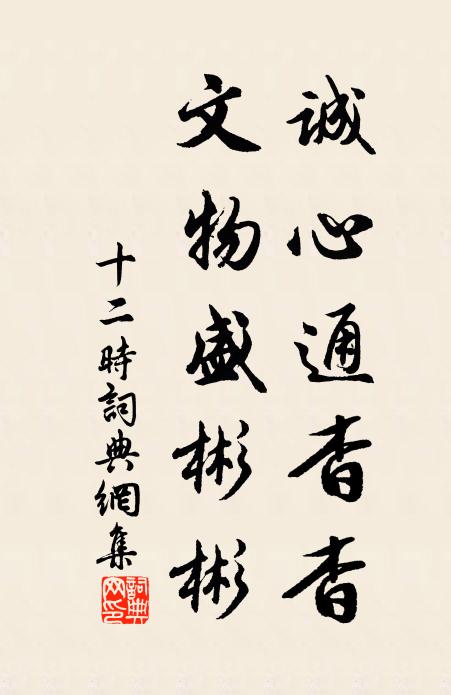 誠心通杳杳
文物盛彬彬
十二時詞典網集
詞典
网印